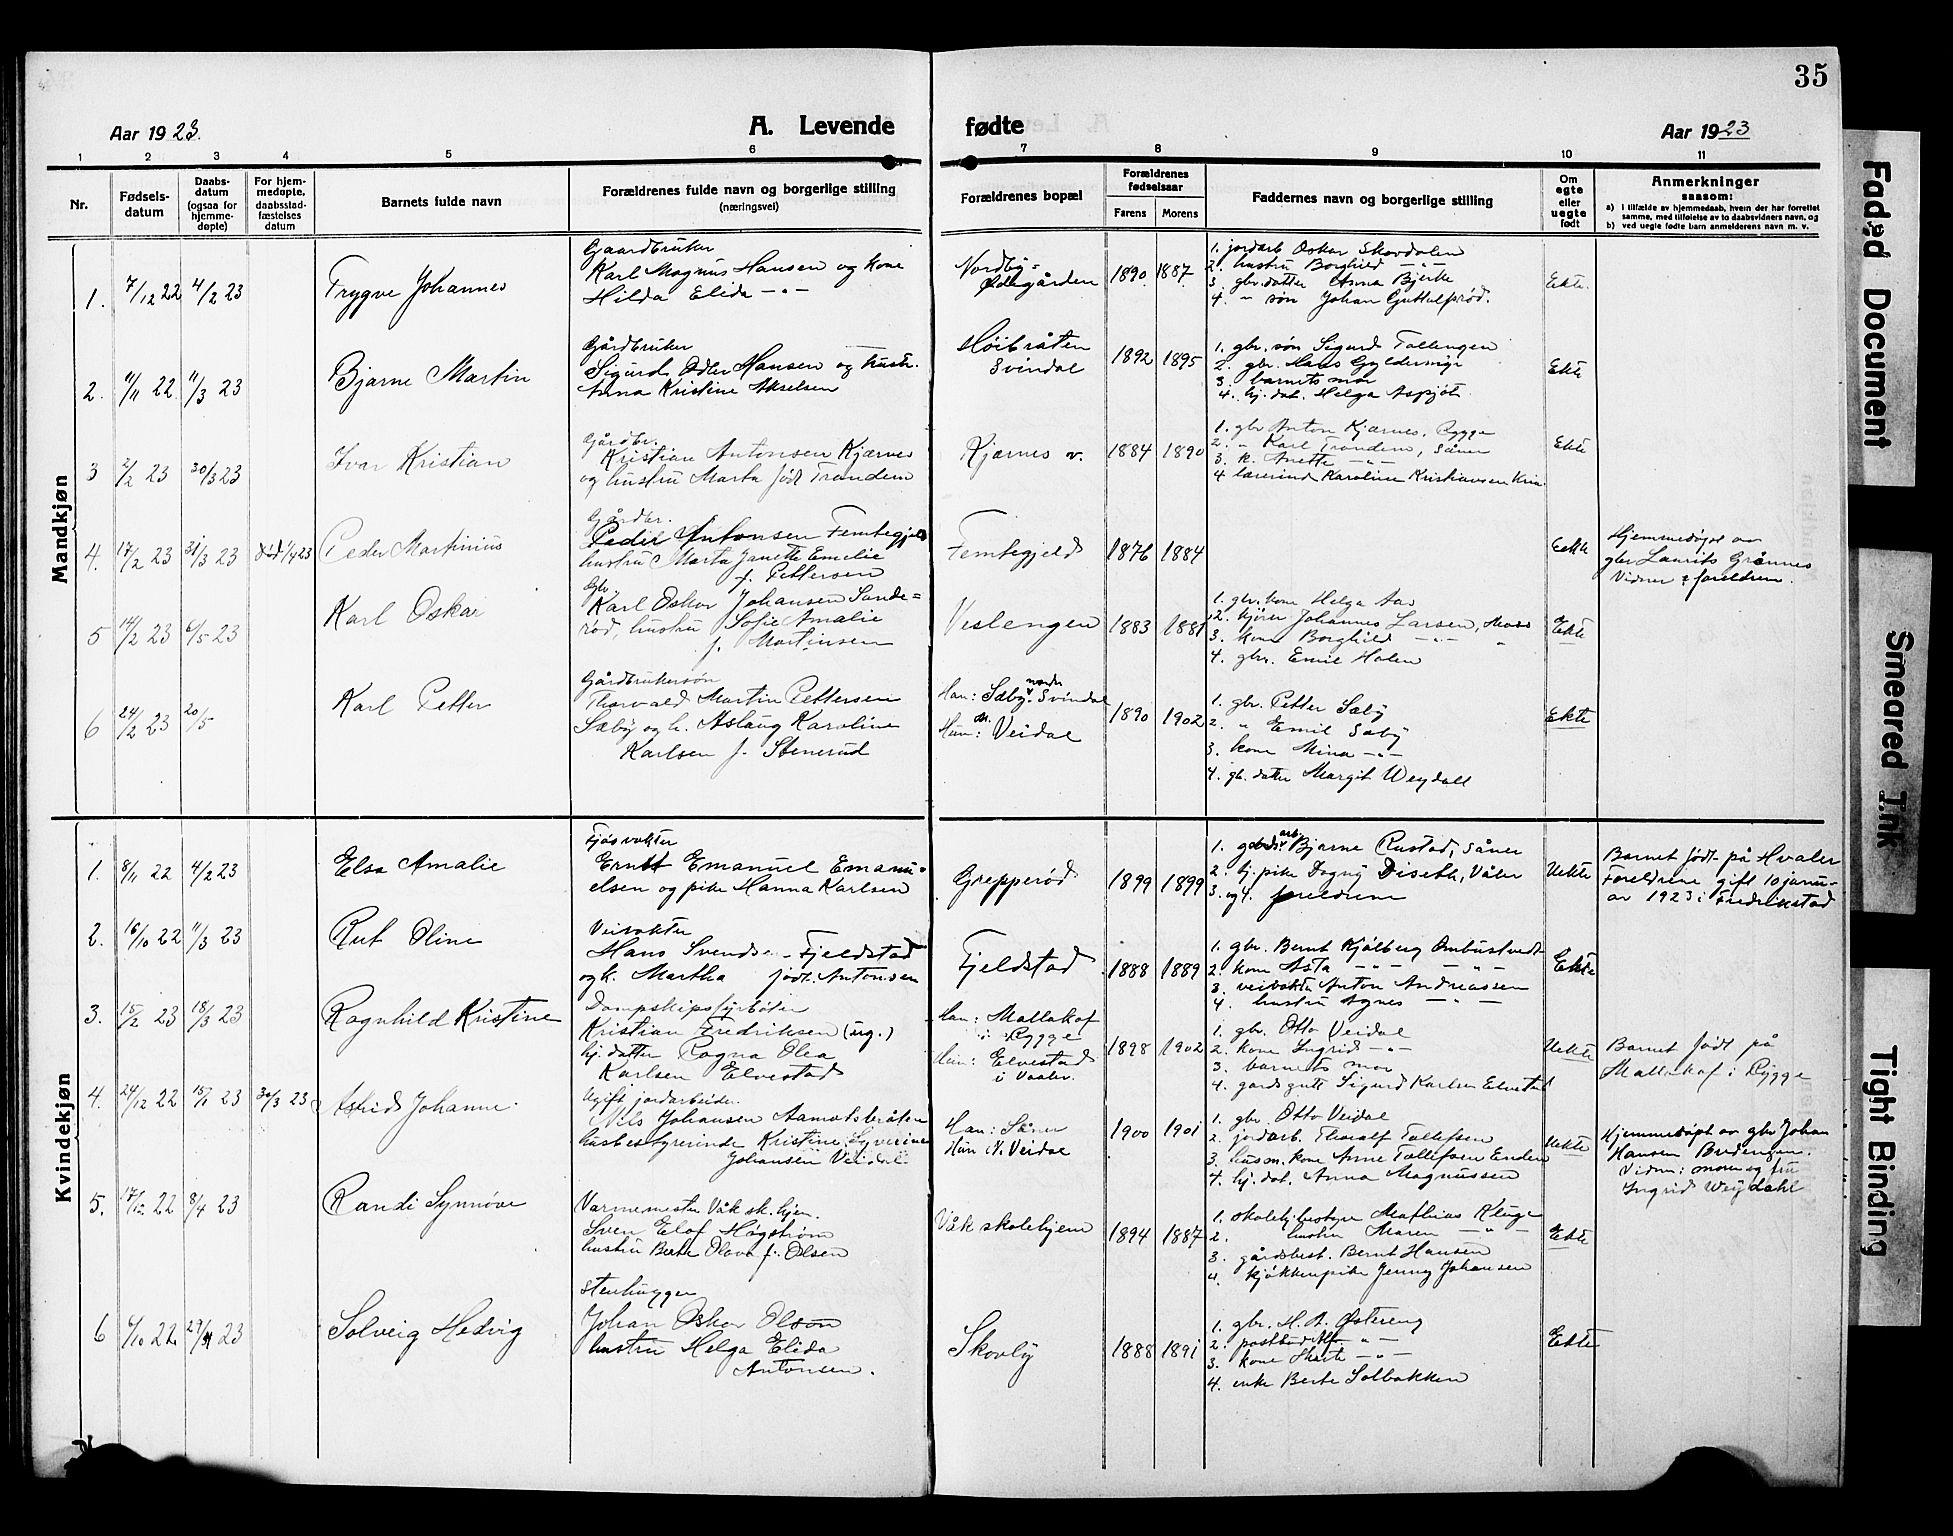 35
Aar 1923.
A. Levende
fødte
Aar 1923
1 2 3 4 5 6 7 8 9 10 11
Nr.
Fødsels-
datum
Daabs-
datum
(ogsaa for
hjemme-
døpte)
For hjem-
medøpte,
daabsstad-
fæstelses
datum
Barnets fulde navn
Forældrenes fulde navn og borgerlige stilling
(næringsvei)
Forældrenes bopæl
Forældrenes
fødselsaar
Farens Morens
Faddernes navn og borgerlige stilling
Om
egte
eller
uegte
født
Anmerkninger
saasom:
a) i tilfælde av hjemmedaab, hvem der har forrettet
samme, med tilføielse av to daabsvidners navn, og
b) ved uegte fødte barn anmelderens navn m. v.
Mandkjøn
1. 7/12 22 4/2 23
Trygve Johannes
Gaardbruker
Karl Magnus Hansen og kone
Hilda Elida -"-
Nordby=
Ødegården
1890 1887
1. jordarb Oskar Skovdalen
2. hustru Borghild -"-
3. gbr. datter Anna Bjerke
4. " søn Johan Guttulfsrød.
Ekte.
2. 11/11 22 11/3 23
Bjarne Martin
Gårdbruker
Sigurd Odler Hansen og hustr.
Anna Kristine Akselsen
Høibråten
Svindal
1892 1895
1. gbr. søn Sigurd Tollengen
2. gbr. Hans Gyldernige
3. barnets mor
4. hj. dat. Helga Aspjøt
Ekte
3 2/2 23 30/3 23
Ivar Kristian
Gårdbr.
Kristian Antonsen Kjærnes
og hustru Marta født Trondem
Kjærnes v.
1884 1890
1. gbr Anton Kjærnes, Rygge
2. " Karl Trondem, Såner
3. k. Anette -"-
4 lærerind Karoline Kristiansen Kria
Ekte
4. 17/2 23 31/3 23 død 1/4 23
Peder Martinius
Gårdbr.
Peder Antonsen Femtegjeld
hustru Marta Janette Emelie
f. Pettersen
Femtegjeld
1876 1884
Eekte
Hjemmedøpt av
gbr Laurits Grønnes
Vidner: foreldrene.
5 14/2 23 6/5 23
Karl Oskar
Gbr.
Karl Oskar Johansen Sande=
rød, hustru Sofie Amalie
f. Martinsen
Veslengen
1883 1881
1. gbr. kone Helga Aas
2. kjører Johannes Larsen, Moss
3. kone Borghild -"- "
4. gbr. Emil Holen
Ekte
6 24/2 23 20/5
Karl Petter
Gårdbrukersøn
Thorvald Martin Pettersen
Sæby og h. Aslaug Karoline
Karlsen f. Stenerud
Han: Sæby nordre Svindal
Hun: n. Veidal
1890 1902
1. gbr. Petter Sæby
2. " Emil Sæby
3. kone Mina -"-
4. gb. datter Margit Weydahl
Ekte
Kvindekjøn
1. 8/11 22 4/2 23
Elsa Amalie
Fjøsvokter
Ernst Emanuel Emanu-
elsen og pike Hanna Karlsen
Grepperød
1899 1899
1. arb. Bjarne Rustad, Såner
2. hj. pike Dagny Diseth, Våler
3. og 4. foreldrene
Uekte
Barnet født på Hvaler
Foreldrene gift 10 janu-
ar 1923 i Fredrikstad
2. 16/10 22 11/3 23
Rut Oline
Veivokter
Hans Svendse - Fjeldstad
og h. Martha født Antonsen
Fjeldstad
1888 1889
1. gbr. Bernt Kjølberg Ombustvedt
2. kone Asta -"- -"-
3. veivokter Anton Andreassen
4. hustru Agnes -"-
Ekte
3. 15/2 23 18/3 23
Ragnhild Kristine
Dampskipsfyrbøter
Kristian Fredriksen (ug.)
hj. datter Ragna Olea
Karlsen Elvestad
Han: Mallakof
i Rygge
Hun: Elvestad
i Vaaler.
1898 1902
1. gbr. Otto Veidal
2. kone Ingrid -"-
3. barnets mor
4. gårds gutt Sigurd Karlsen Elvestad
Uekte
Barnet født på
Mallakof i Rygge
4. 24/12 22 15/1 23 30/3 23
Astrid Johanne.
Ugift jordarbeider
Nils Johansen Aamodsbråten
husbestyrerinde Kristine Syverine
Johansen Veidal.
Han: Såner
Hun N. Veidal
1900 1901
1. gbr. Otto Veidal
2. jordarb. Thoralf Tollefsen
3. husm. kone Anne Tollefsen Enden
4. hj. dat. Anna Magnussen
Uekte
Hjemmedøpt av gbr Johan
Hansen Brudengen.
Vidner: moren og fru
Ingrid Weydahl
5. 17/12 22 8/4 23
Randi Synnøve
Varmemester Våk sk. hjem.
Sven Elof Høgstrøm
hustru Berte Olava f. Olsen
Våk skolehjem
1894 1887
1. skolehj. bestyrer Mathias Kluge
2. hustru Maren -"-
3. gårdsbest. Bernt Hansen
4. kjøkkenpike Jenny Johansen
Ekte
6 6/10 22 29/4 23
Solveig Hedvig
Stenhugger
Johan Oskar Olsen
hustru Helga Elida
Antonsen.
Skovly
1888 1891
1. gbr. H. A. Østereng
2. -"-
3. kone -"-
4. enke Berte Solbakken
Ekte
Faded Document
Smeared Ink
Tight Binding